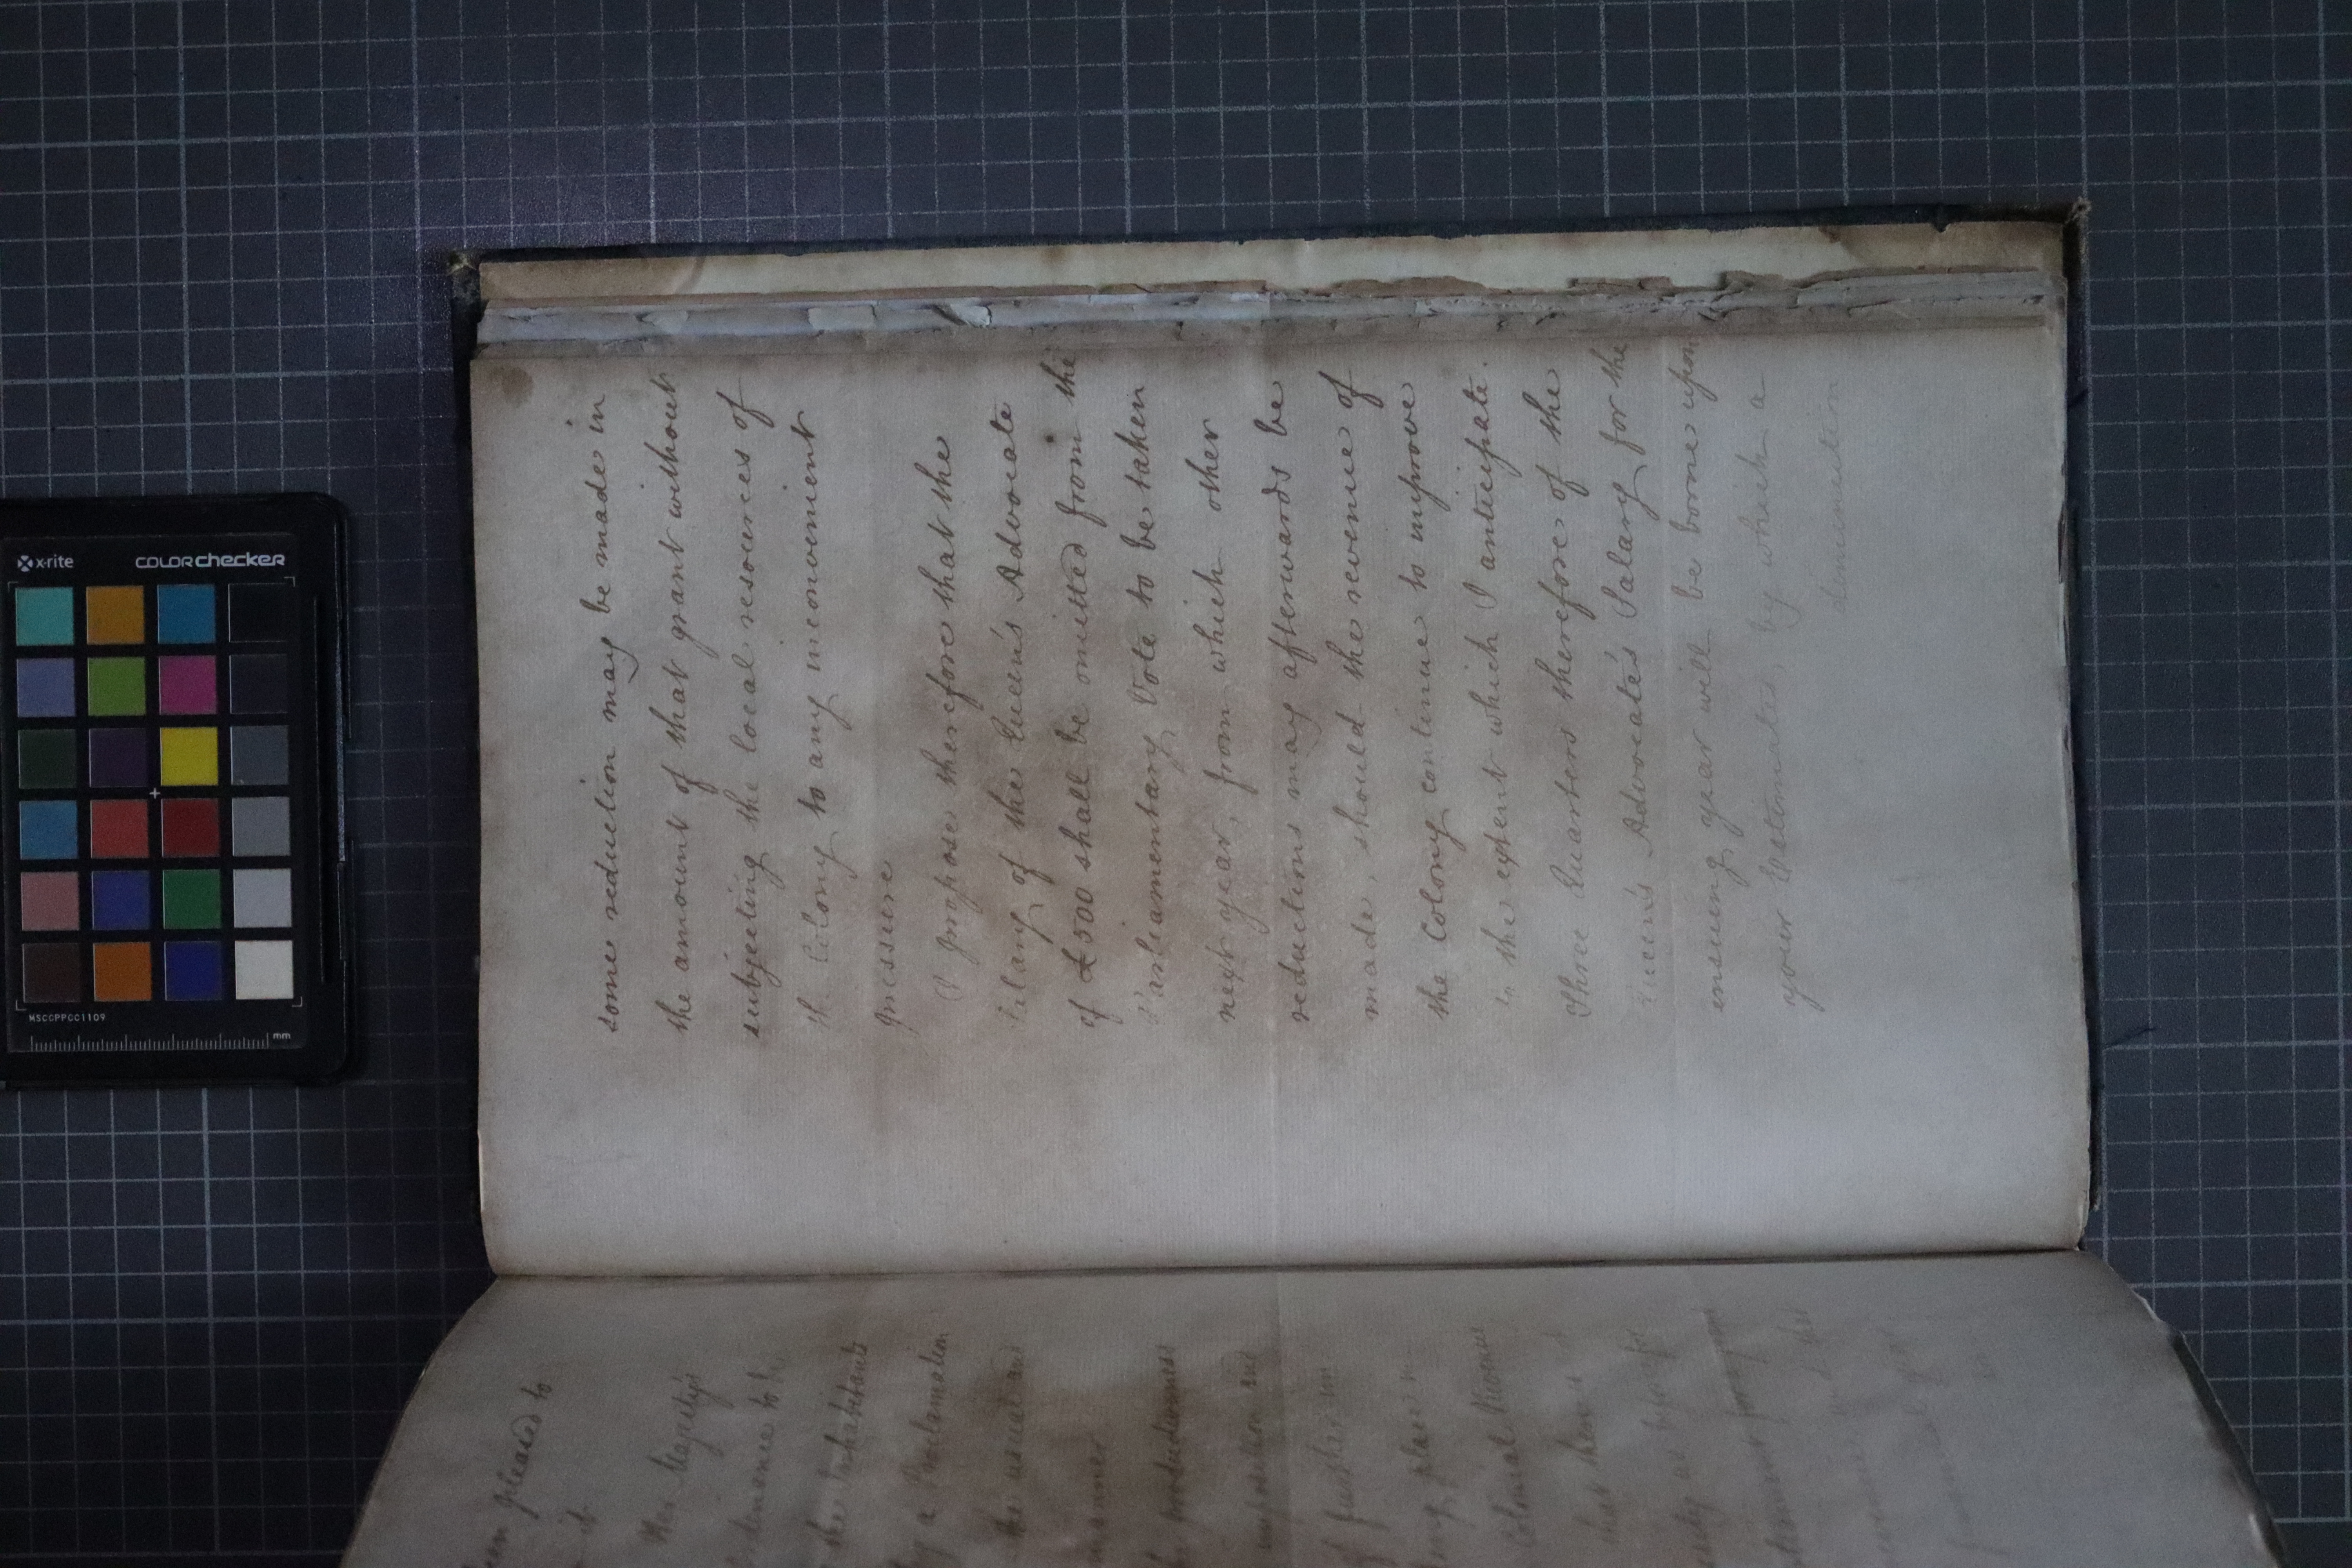 some reduction may be made in
the amount of that grant without
subjecting the local resources of
the Colony to any inconvenient
pressure
I propose therefore that the
Salary of the Queen's Advocate
of £500 shall be omitted from the
Parliamentary Vote to be taken
next year, from which other
reductions may afterwards be
made, should the revenue of
the Colony continue to improve
to the extent which I anticipate.
Three Quarters therefore of the
Queen's Advocate's Salary for the
ensuing year will be borne upon
your Estimates, by which a
diminution
pleased to
it.
Her Majesty's
to the
the Inhabitants
by a Proclamation
the usual and
manner
productiveness
imposition and
of further
place
Colonial Revenue
that
as
x-rite
colorchecker
MSCCPPCC1109
mm